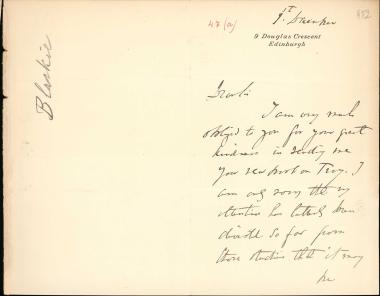 Blackie
47 (a)
852
1st December
9 Douglas Crescent
Edinburgh
Dear Sir
I am very much
obliged to you for your great
kindness in sending me
your new book on Troy. I
am only sorry that my
attention has lately been
directed so far from
those studies that it may
be